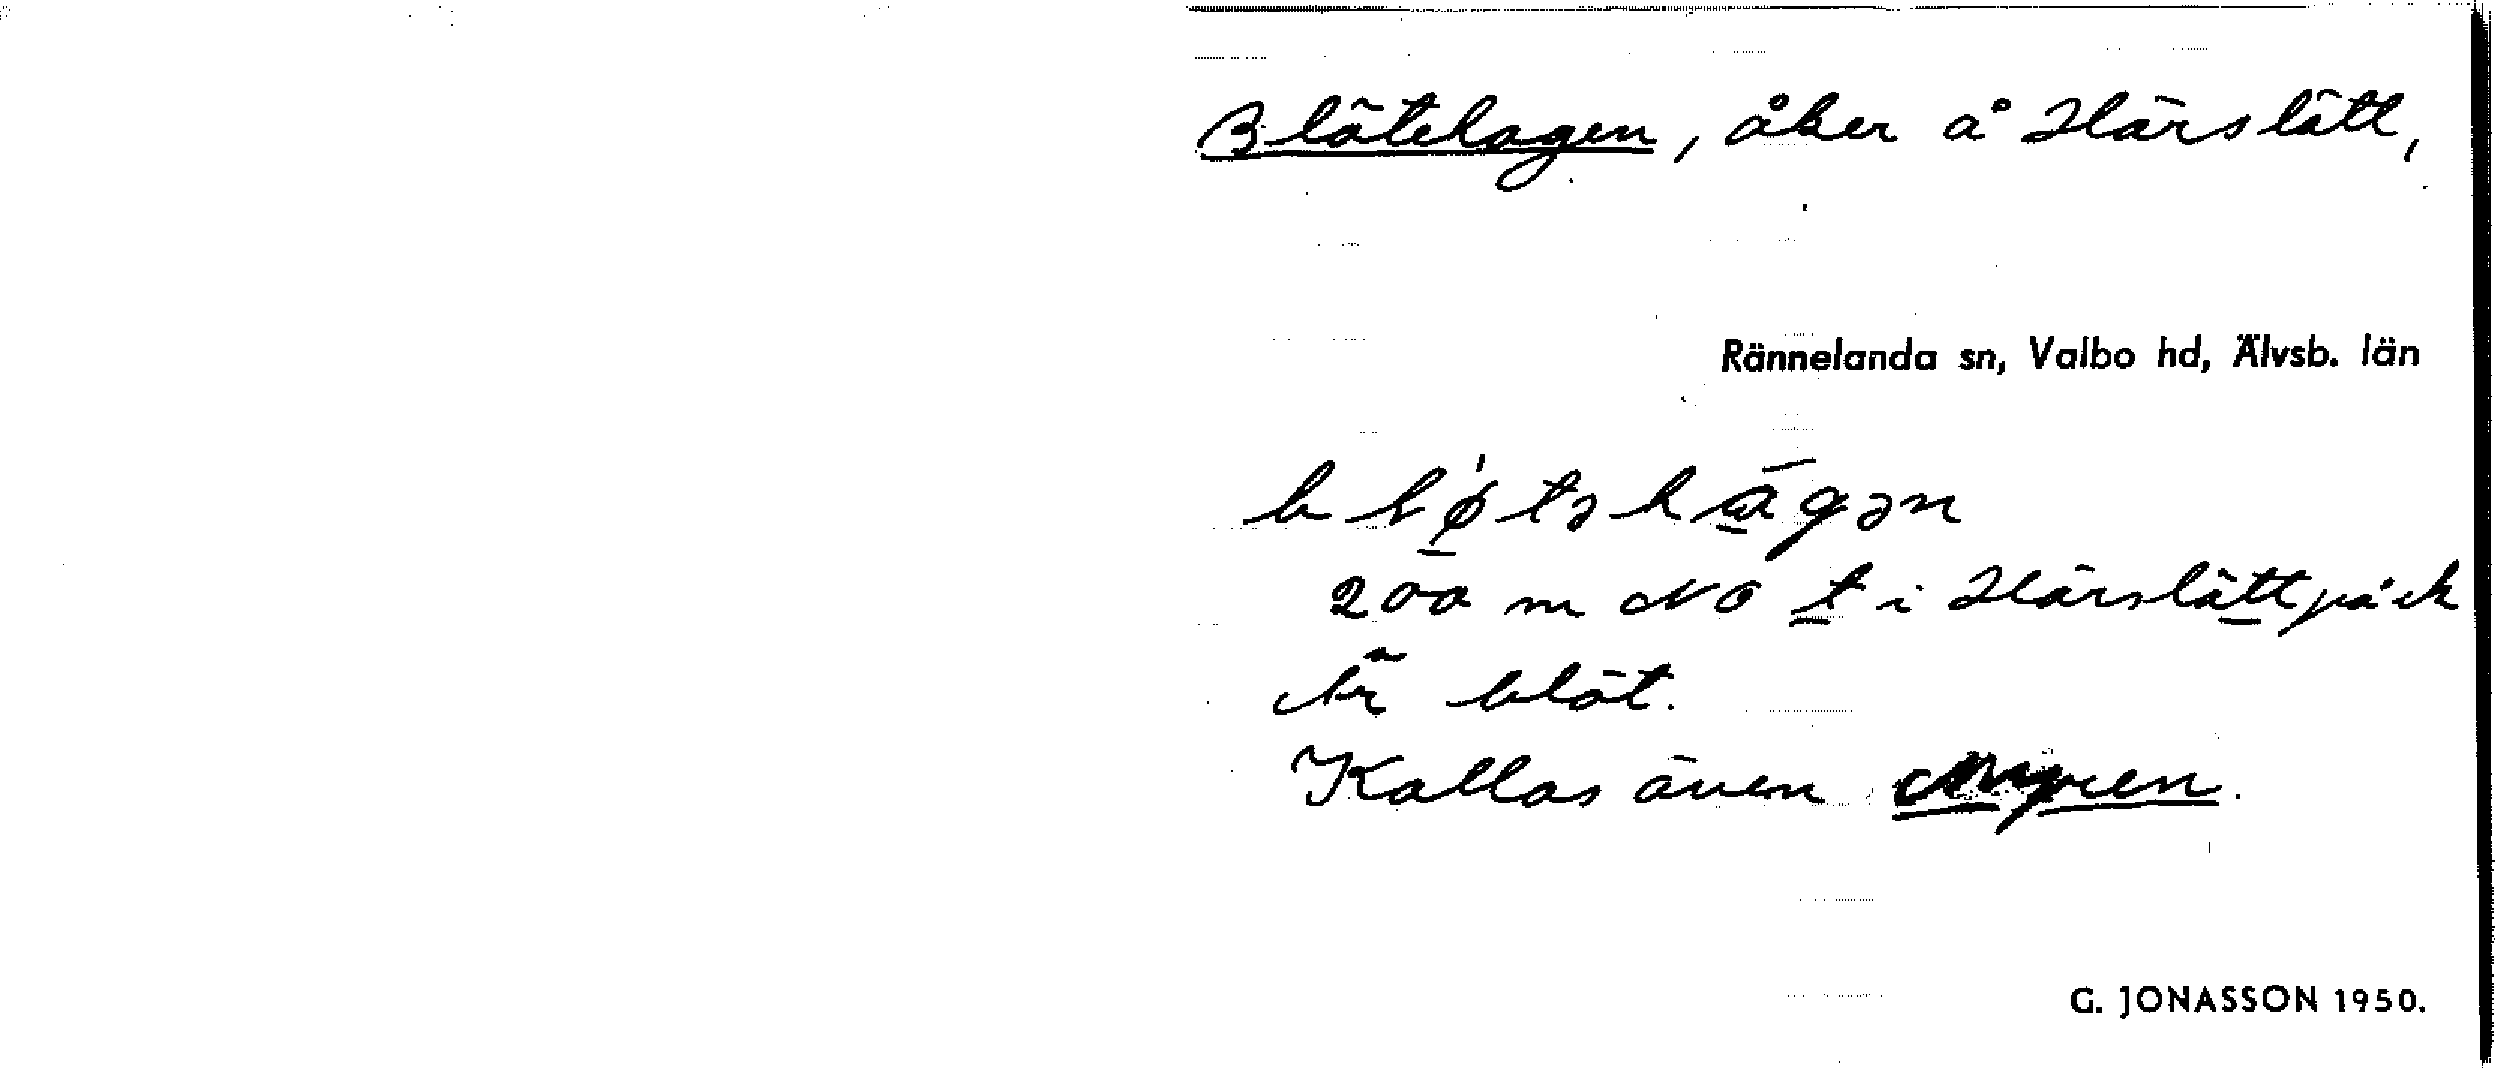 Blötehagen, åker å Härslätt,
Rännelanda sn, Valbo hd, Älvsb. län
200 m NO t i Härslätt på ek
Är blöt.
Kallas även Myren.
G. JONASSON 1950.